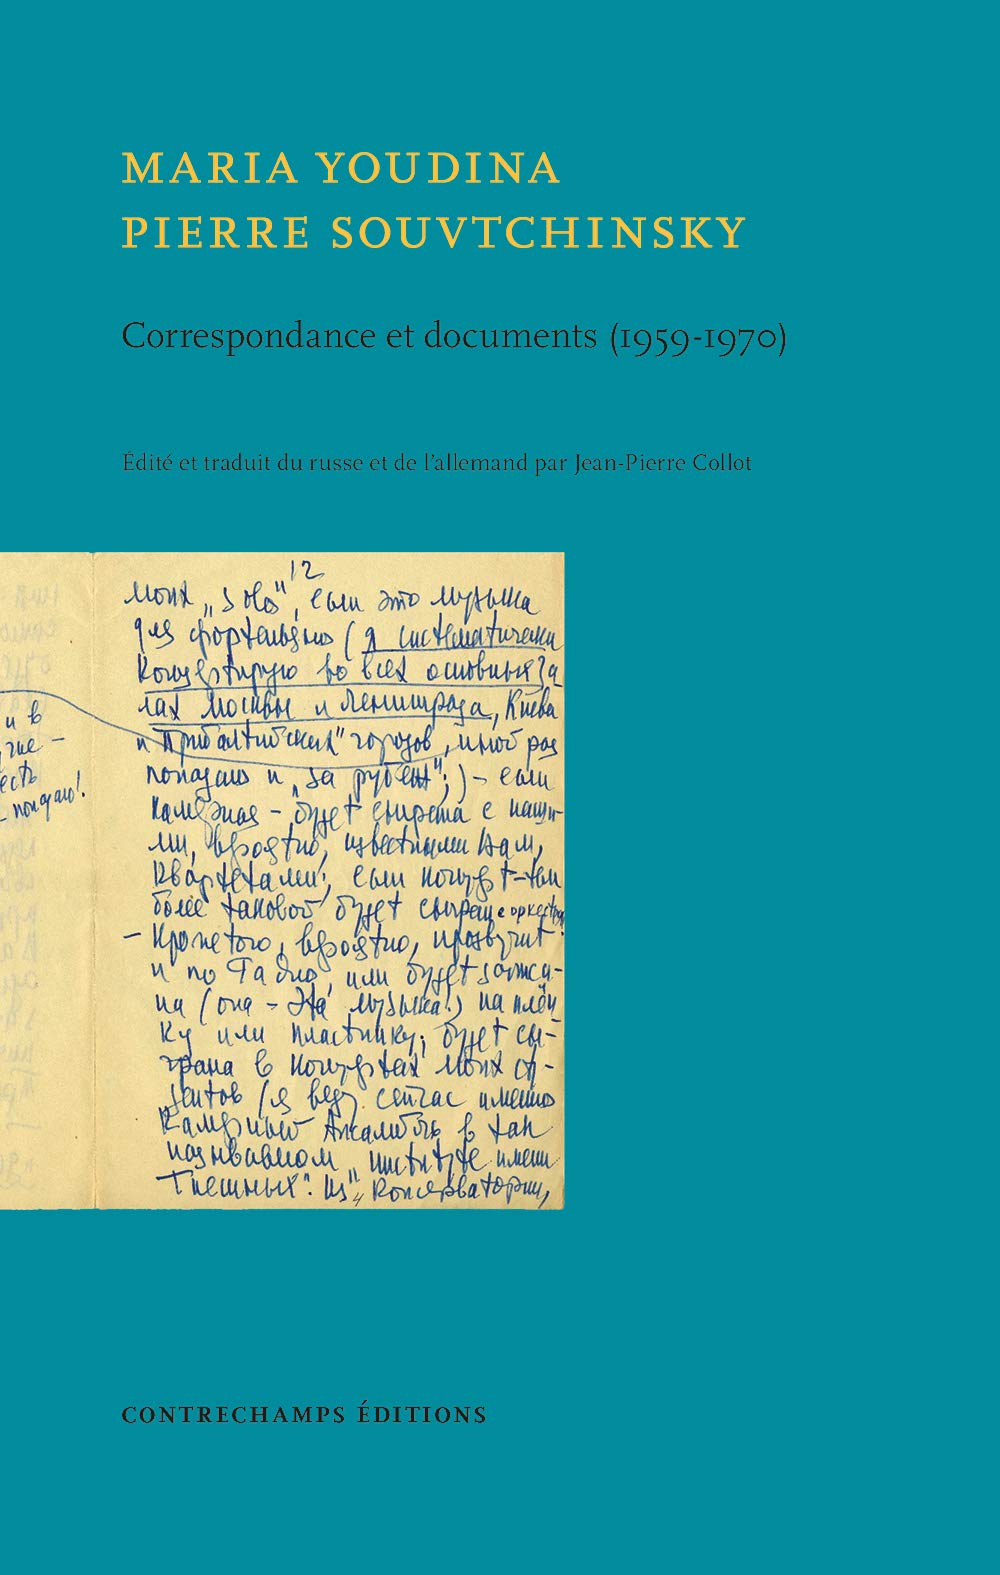 MARIA YOUDINA
PIERRE SOUVTCHINSKY
Correspondance et documents (1959-1970)
Édité et traduit du russe et de l'allemand par Jean-Pierre Collot
12
моих „solo", если это музыка
для фортепиано (я систематически
концертирую во всех основных за-
лах Москвы и Ленинграда, Киева
и „Прибалтийских" городов, иной раз
попадаю и „за рубеж";) – если
камерная – будет сыграна с наши-
ми, вероятно, известными Вам,
квартетами; если концерт – тем
более таковой будет сыгран с оркестром.
– Кроме того, вероятно, прозвучит
и по Радио, или будет записа-
на (она – эта музыка!) на плён-
ку или пластинку; будет сы-
грана в концертах моих сту-
дентов (я веду сейчас именно
Камерный Ансамбль в так
называемом „институте имени
Гнесиных". Из „Консерватории,
и в
есть
попадаю!
CONTRECHAMPS ÉDITIONS